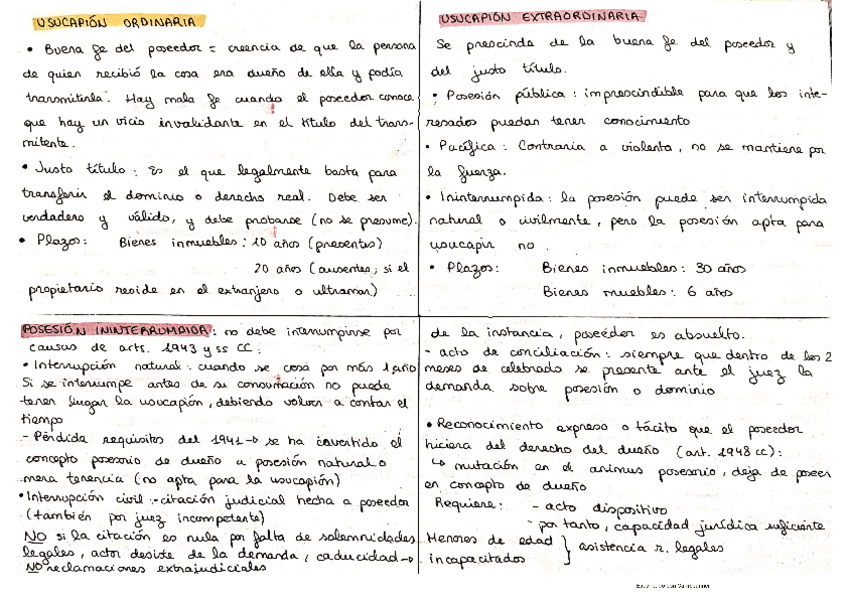 USUCAPIÓN ORDINARIA
• Buena fe del poseedor = creencia de que la persona
de quien recibió la cosa era dueño de ella y podía
transmitirla. Hay mala fe cuando el poseedor conoce
que hay un vicio invalidante en el título del trans-
mitente.
• Justo título: Es el que legalmente basta para
transferir el dominio o derecho real. Debe ser
verdadero y válido, y debe probarse (no se presume).
• Plazos: Bienes inmuebles: 10 años (presentes)
20 años (ausentes, si el
propietario reside en el extranjero o ultramar)
USUCAPIÓN EXTRAORDINARIA
Se prescinde de la buena fe del poseedor y
del justo título.
• Posesión pública: imprescindible para que los inte-
resados puedan tener conocimiento
• Pacífica: Contraria a violenta, no se mantiene por
la fuerza.
• Ininterrumpida: la posesión puede ser interrumpida
natural o civilmente, pero la posesión apta para
usucapir no.
• Plazos: Bienes inmuebles: 30 años
Bienes muebles: 6 años
POSESIÓN ININTERRUMPIDA: no debe interrumpirse por
causas de arts. 1943 y ss CC:
• Interrupción natural: cuando se cesa por más 1 año
Si se interrumpe antes de su consumación no puede
tener lugar la usucapión, debiendo volver a contar el
tiempo
- Pérdida requisitos del 1941 → se ha invertido el
concepto posesorio de dueño a posesión natural o
mera tenencia (no apta para la usucapión)
• Interrupción civil: - citación judicial hecha a poseedor
(también por juez incompetente)
NO si la citación es nula por falta de solemnidades
legales, actor desiste de la demanda, caducidad →
NO reclamaciones extrajudiciales
de la instancia, poseedor es absuelto.
- acto de conciliación: siempre que dentro de los 2
meses de celebrado se presente ante el juez la
demanda sobre posesión o dominio
• Reconocimiento expreso o tácito que el poseedor
hiciera del derecho del dueño (art. 1948 CC):
↳ mutación en el animus posesorio, deja de poseer
en concepto de dueño
Requiere: - acto dispositivo
- por tanto, capacidad jurídica suficiente
Menores de edad } asistencia r. legales
incapacitados